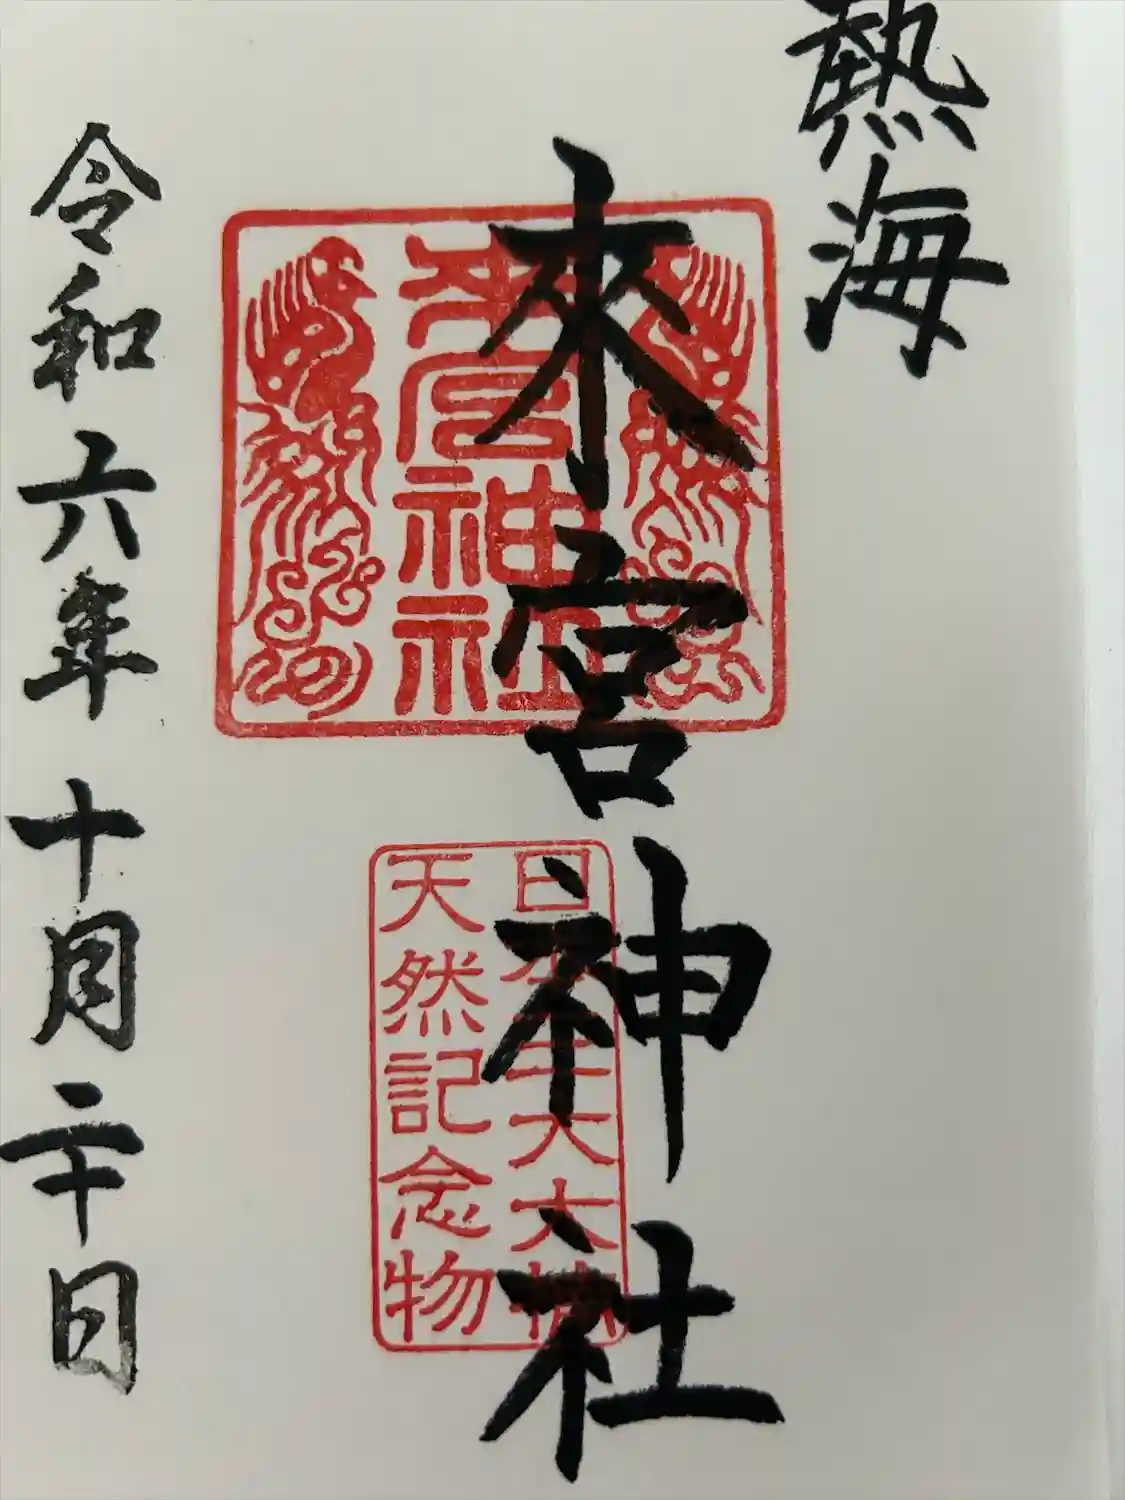 熱海
來宮神社
來宮神社
日本三大大楠
天然記念物
令和六年 十月二十日